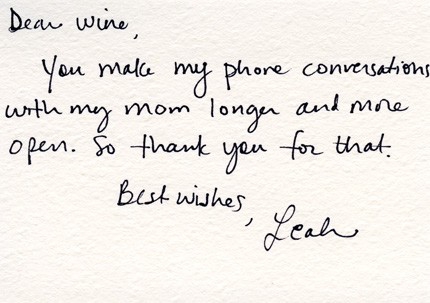 Dear Wine,
You make my phone conversations
with my mom longer and more
open. So thank you for that.
Best wishes,
Leah